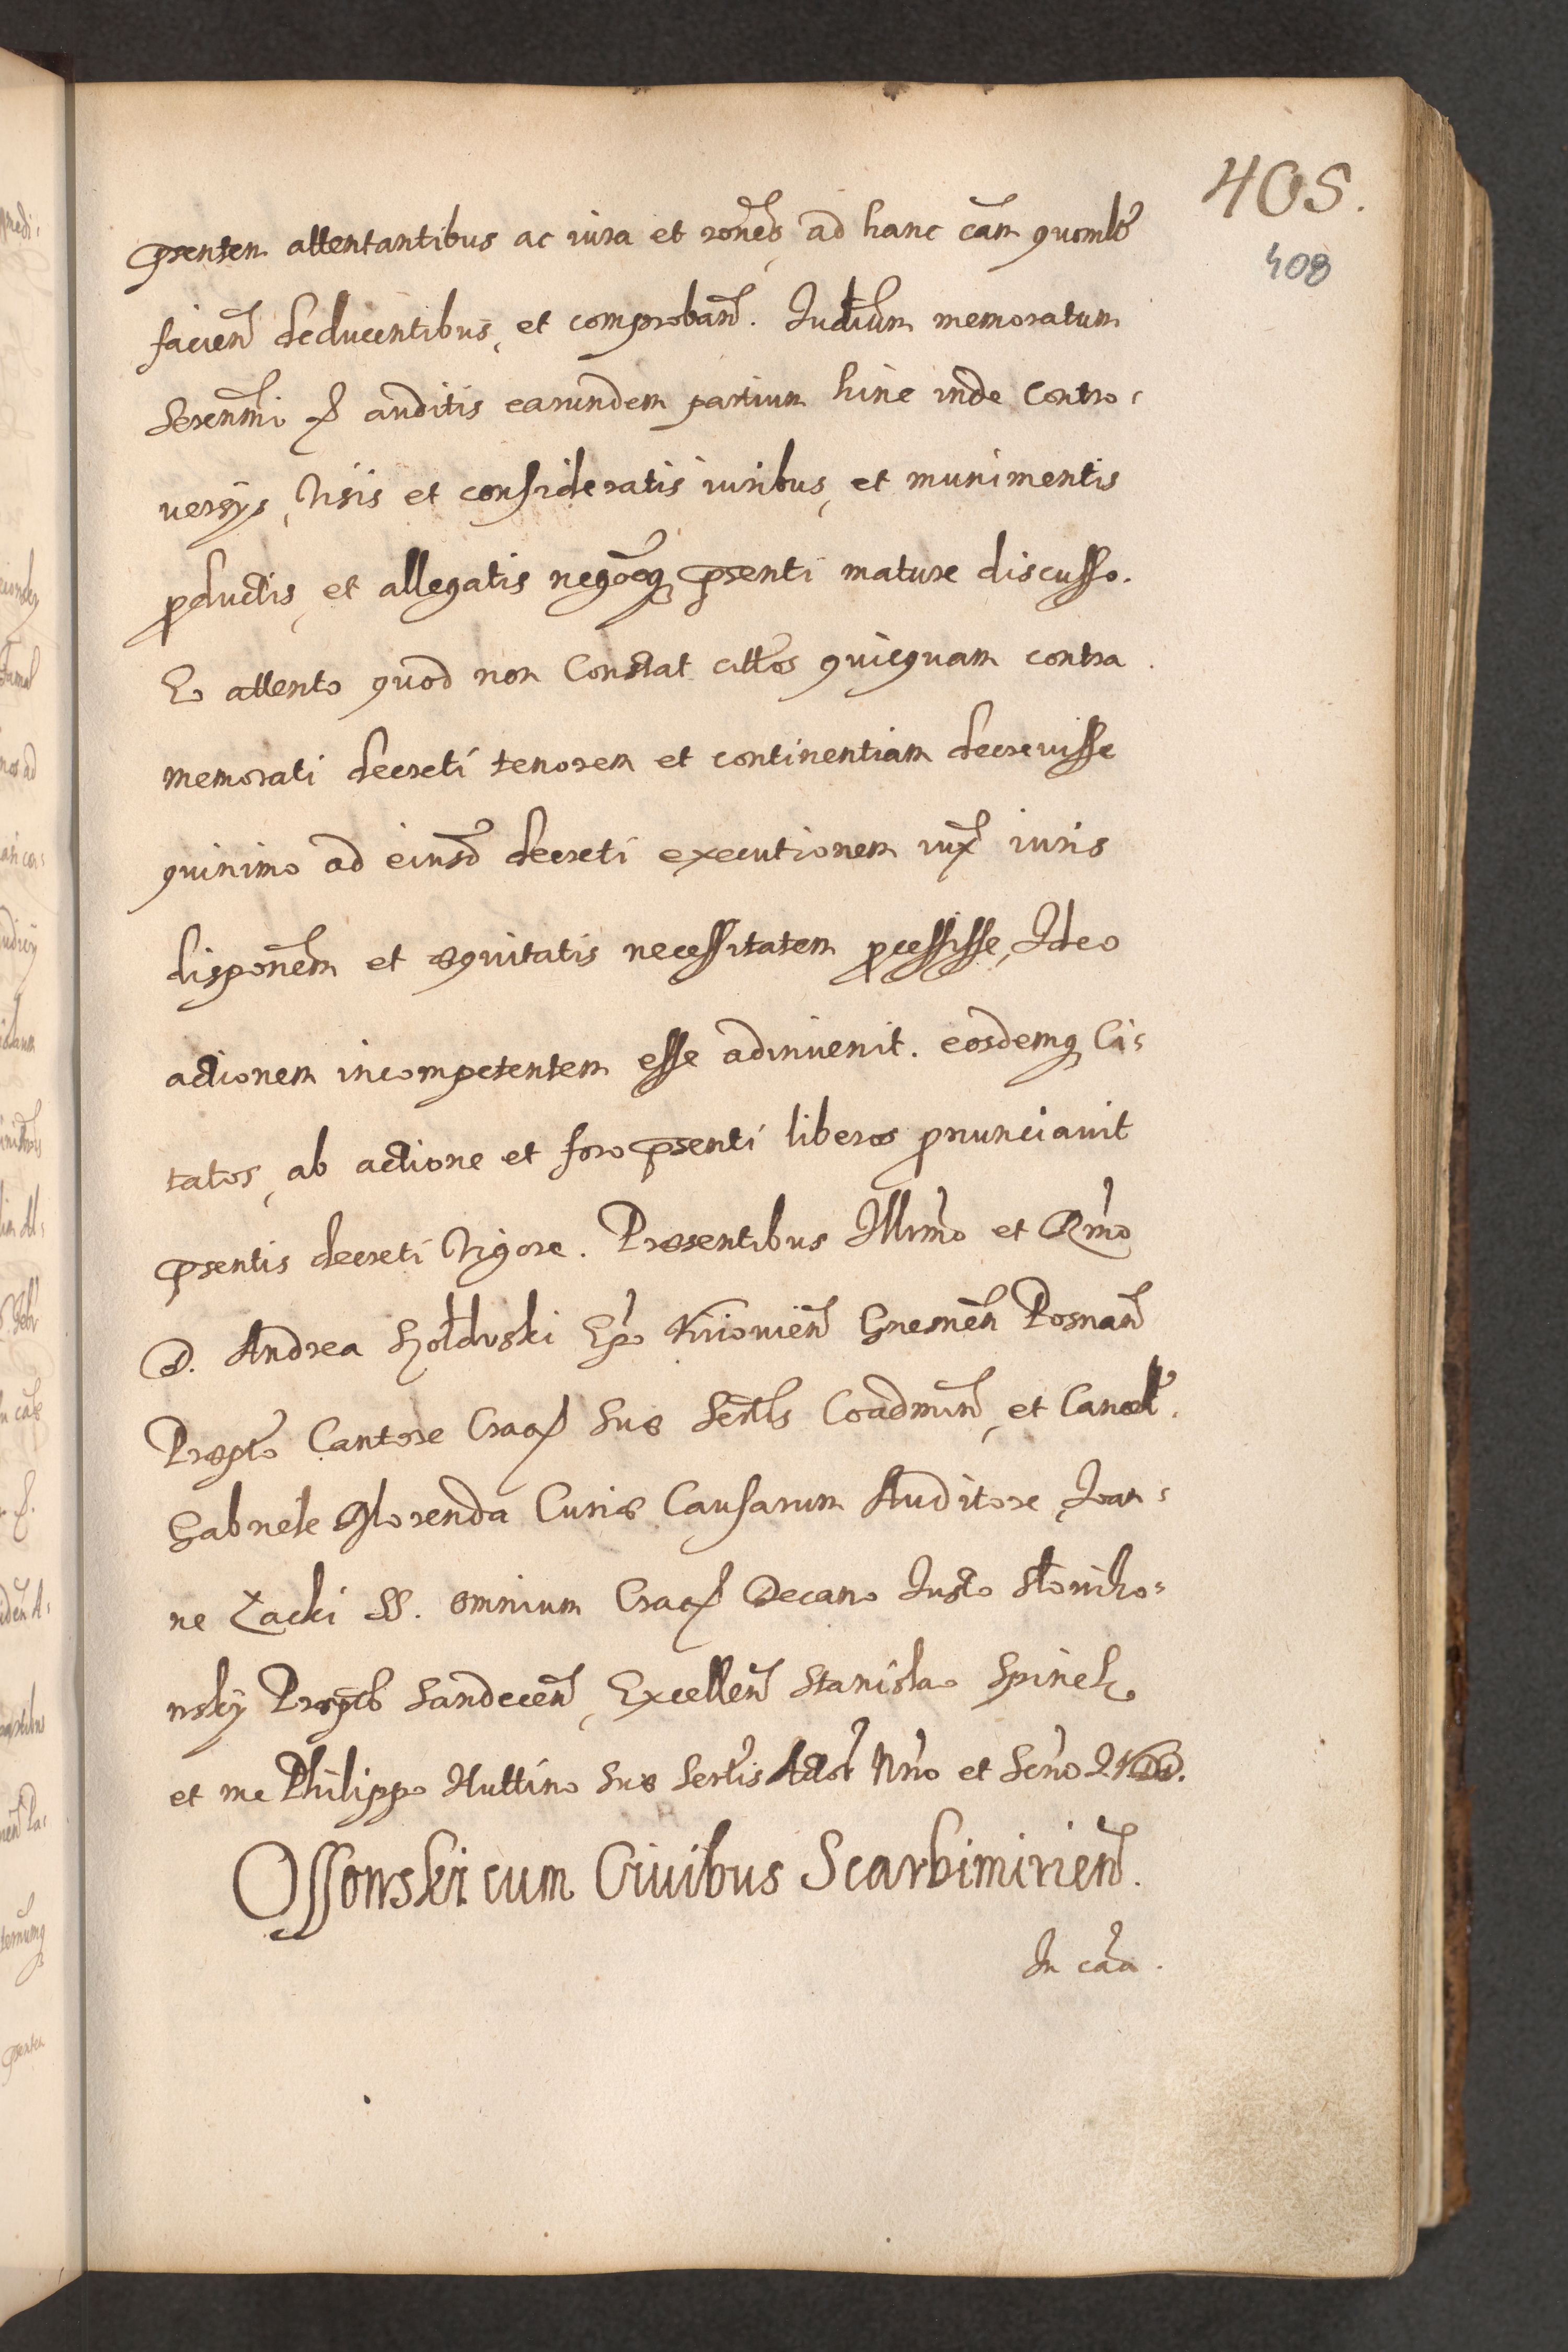 405.
408
pſentem attentantibus ac iura et rones, ad hanc cam quomlt
facien deducentibus, et comproban. Iudicium memoratum
Serenmi P auditis earundem partium hinc inde Contro-
uersijs, Visis et consideratis iuribus, et munimentis
pductis, et allegatis negoeq psenti mature discusso.
Eo attento quod non Constat cittos quicquam contra
memorati decreti tenorem et continentiam decrevisse
quinimo ad eiusd decreti executionem iux iuris
disponem et æquitatis necessitatem pcessisse, Ideo
actionem incompetentem esse adinuenit. eosdemq Ci-
tatos, ab actione et foro psenti liberos pnunciauit
psentis decreti Vigore. Præsentibus Illrmo et Rmo
D. Andrea Szołdrski Epo Kiiouien Gnesnen Posnan
Præpto Cantore Crac Suæ Sertis Coadmin, et Cancel.
Gabriele Wlorenda Curiæ Causarum Auditore, Ioan-
ne Zacki SS. omnium Crac Decano Iusto Słowiko-
wsky Præpto Sandecen, Excellen Stanislao Spinek
et me Philippo Huttino Suæ Sertis
Ossowski cum Ciuibus Scarbimirien.
In caa.